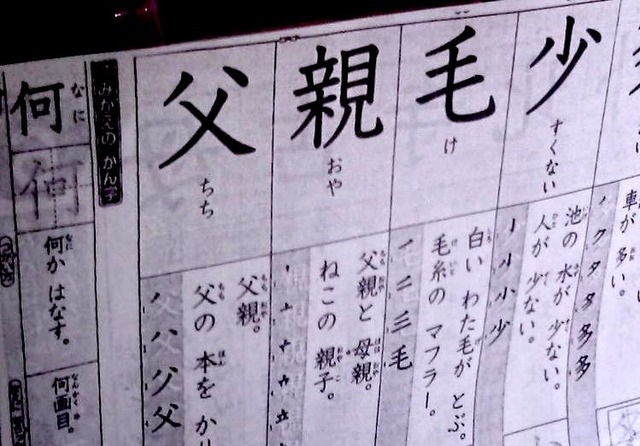 車が 多い。
ノクタタ多多
少
すくない
池の 水が 少ない。
人が 少ない。
亅小小少
毛
け
白い わた毛が とぶ。
毛糸の マフラー。
一二三毛
親
おや
父親と 母親。
ねこの 親子。
父
ちち
父親。
父の 本を かり
ノハグ父
みかえの かん字
何
なに
何
何か はなす。
何画目。